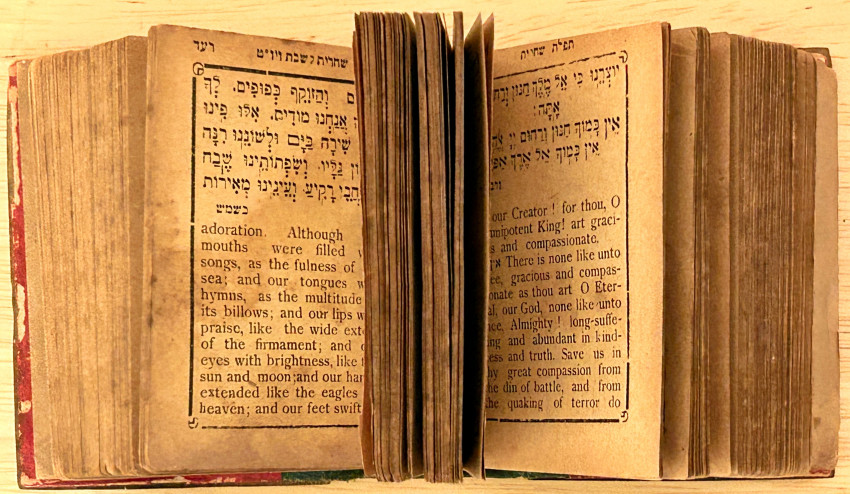 שחרית לשבת ויו״ט רעד
וְהַזּוֹקֵף כְּפוּפִים. לְךָ
אֲנַחְנוּ מוֹדִים. אִלּוּ פִינוּ
שִׁירָה כַּיָּם וּלְשׁוֹנֵנוּ רִנָּה
גַּלָּיו. וְשִׂפְתוֹתֵינוּ שֶׁבַח
רָקִיעַ וְעֵינֵינוּ מְאִירוֹת
כשמש
adoration. Although
mouths were filled
songs, as the fulness of
sea; and our tongues
hymns, as the multitude
its billows; and our lips
praise, like the wide
of the firmament; and
eyes with brightness, like
sun and moon;and our
extended like the eagles
heaven; and our feet
תפלת שחרית
יוֹצְרֵנוּ כִּי אֵל מֶלֶךְ חַנּוּן
אָתָּה:
אֵין כָּמוֹךָ חַנּוּן וְרַחוּם יְיָ
אֵין כָּמוֹךָ אֵל אֶרֶךְ
our Creator ! for thou, O
King! art graci-
and compassionate.
There is none like unto
gracious and compas-
as thou art O Eter-
our God, none like unto
Almighty ! long-suffe-
and abundant in kind-
and truth. Save us in
great compassion from
din of battle, and from
the quaking of terror do